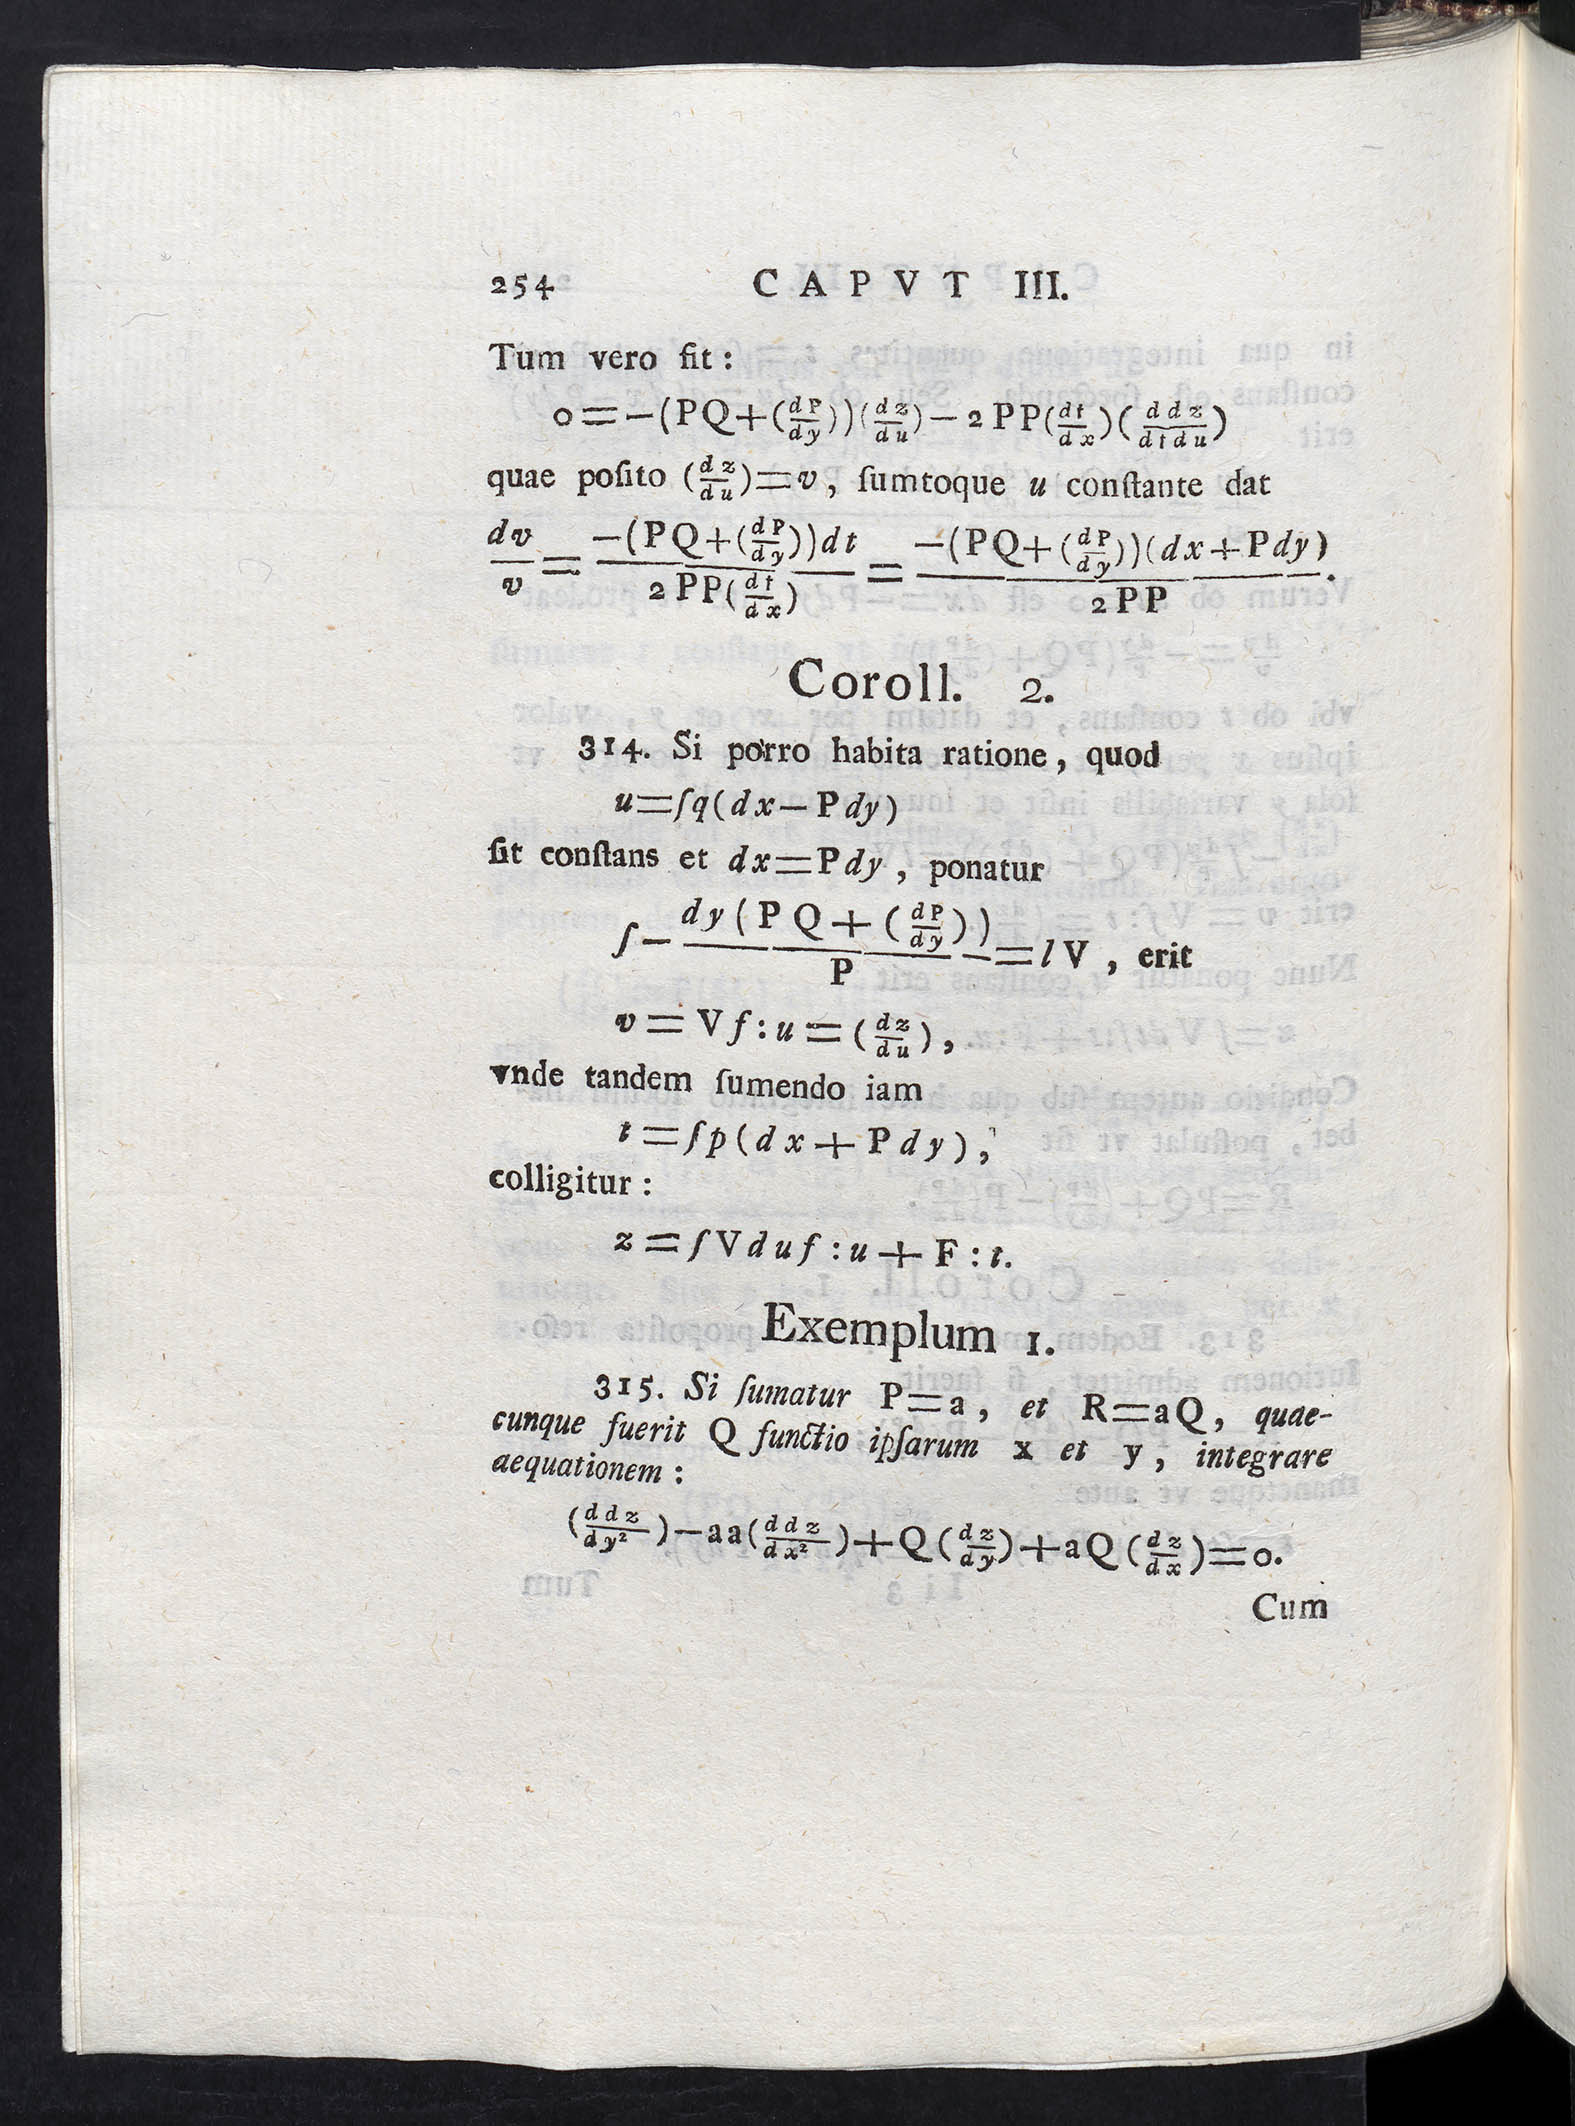 254 CAPVT III.
Tum vero fit :
0=−(PQ+(dP/dy))(dz/du)−2PP(dt/dx)(ddz/dtdu)
quae poſito (dz/du)=v, ſumtoque u conſtante dat
dv/v = −(PQ+(dP/dy))dt / 2PP(dt/dx) = −(PQ+(dP/dy))(dx+Pdy) / 2PP.
Coroll. 2.
314. Si porro habita ratione, quod
u=∫q(dx−Pdy)
ſit conſtans et dx=Pdy, ponatur
∫− dy(PQ+(dP/dy)) / P =lV, erit
v=Vf:u=(dz/du),
vnde tandem ſumendo iam
t=∫p(dx+Pdy),
colligitur :
z=∫Vduf:u+F:t.
Exemplum 1.
315. Si ſumatur P=a, et R=aQ, quae-
cunque fuerit Q functio ipſarum x et y, integrare
aequationem :
(ddz/dy²)−aa(ddz/dx²)+Q(dz/dy)+aQ(dz/dx)=0.
Cum